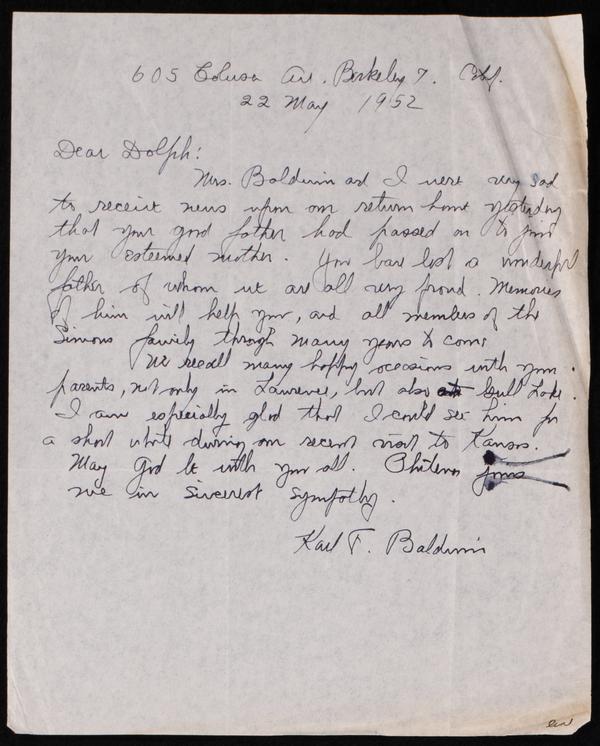 605 Colusa Av. Berkeley 7. Calif.
22 May 1952
Dear Dolph:
Mrs. Baldwin and I were very sad
to receive news upon our return home yesterday
that your good father had passed on to join
your esteemed mother. You have lost a wonderful
father of whom we are all very proud. Memories
of him will help you, and all members of the
Simons family through many years to come
We recall many happy occasions with your
parents, not only in Lawrence, but also at Gull Lake.
I am especially glad that I could see him for
a short while during our recent visit to Kansas.
May God be with you all. joins
me in sincerest sympathy.
Karl F. Baldwin